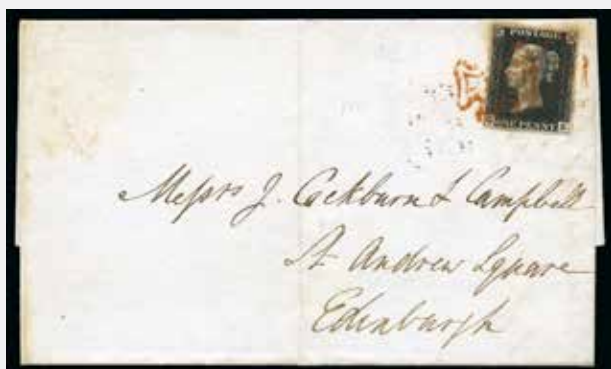 POSTAGE
ONE PENNY
Messrs J. Cockburn & Campbell
St Andrew Square
Edinburgh